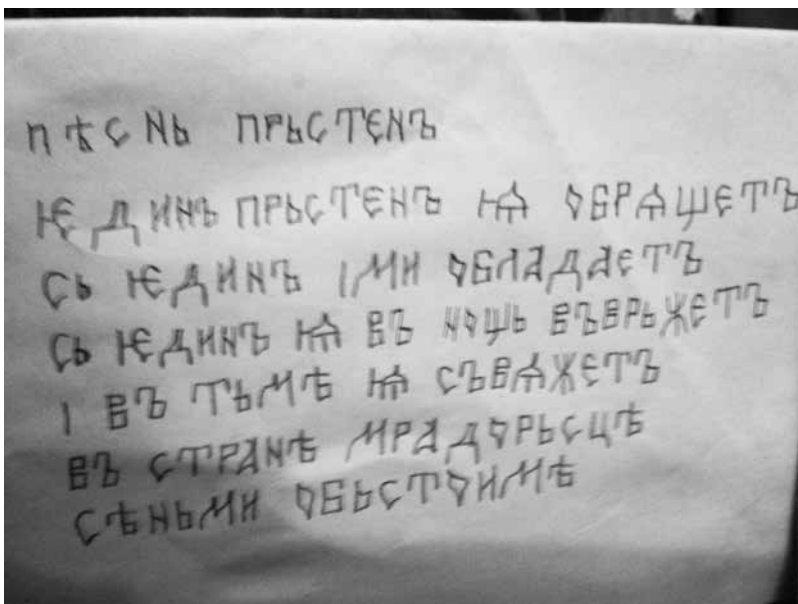 пѣснь прьстєнъ
ѥдинъ прьстєнъ ѩ обрѧщєтъ
сь ѥдинъ ими обладаєтъ
сь ѥдинъ ѩ въ нощь въврьжєтъ
і въ тьмѣ ѩ съвѧжєтъ
въ странѣ мрадорьсцѣ
сѣньми обьстоимѣ